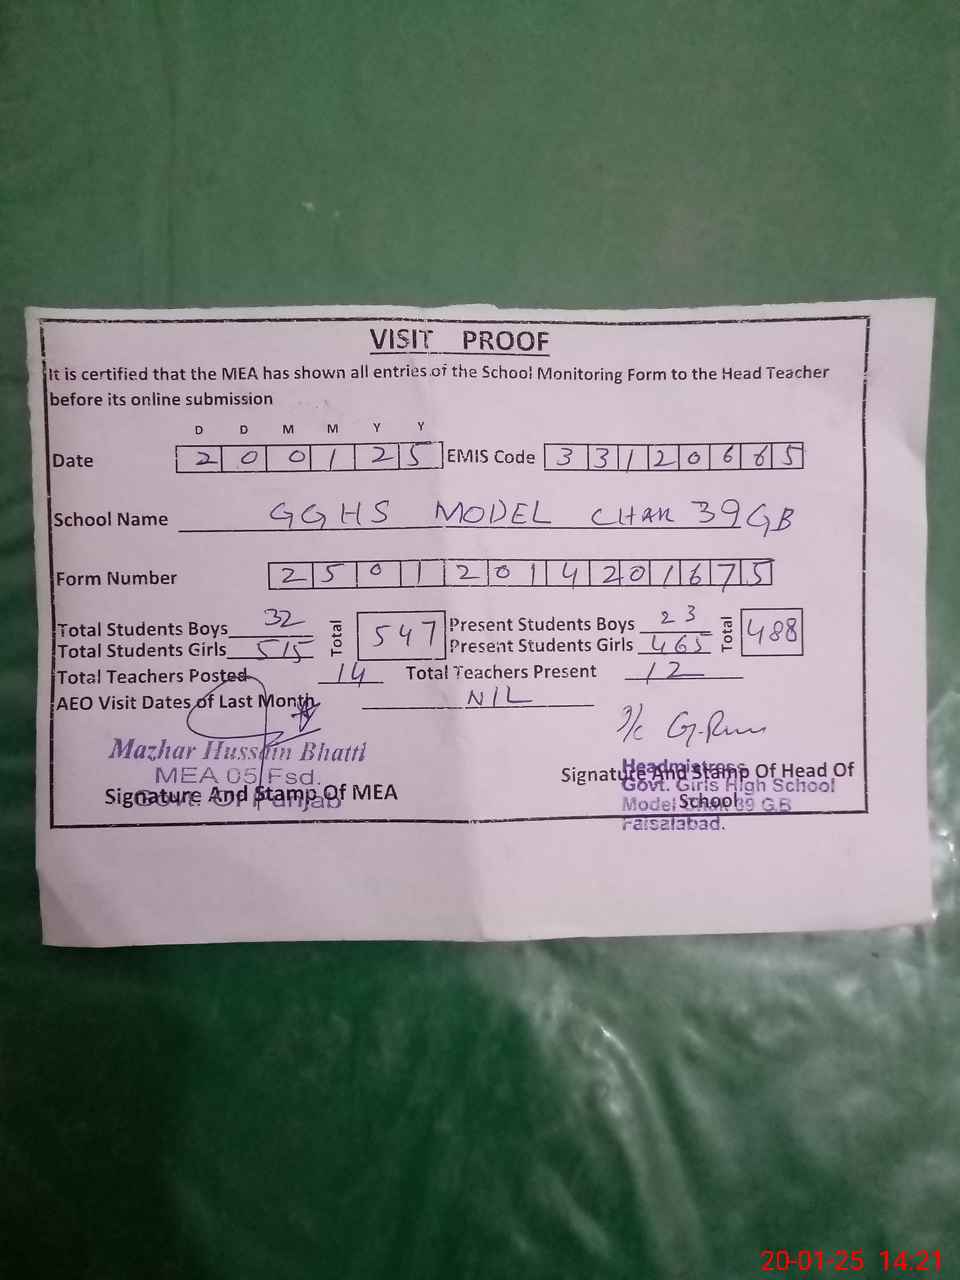 VISIT PROOF
It is certified that the MEA has shown all entries of the School Monitoring Form to the Head Teacher
before its online submission
D D M M Y Y
Date 2 0 0 1 2 5 EMIS Code 3 3 1 2 0 6 6 5
School Name GGHS MODEL CHAK 39 GB
Form Number 2 5 0 1 2 0 1 4 2 0 1 6 7 5
Total Students Boys 32 Total 547 Present Students Boys 23 Total 488
Total Students Girls 515 Present Students Girls 465
Total Teachers Posted 14 Total Teachers Present 12
AEO Visit Dates of Last Month NIL
Mazhar Hussain Bhatti
MEA 05 Fsd.
Govt. Of Punjab
Signature And Stamp Of MEA
Headmistress
Signature And Stamp Of Head Of
School
Govt. Girls High School
Model Chak 39 G.B
Faisalabad.
20-01-25 14:21